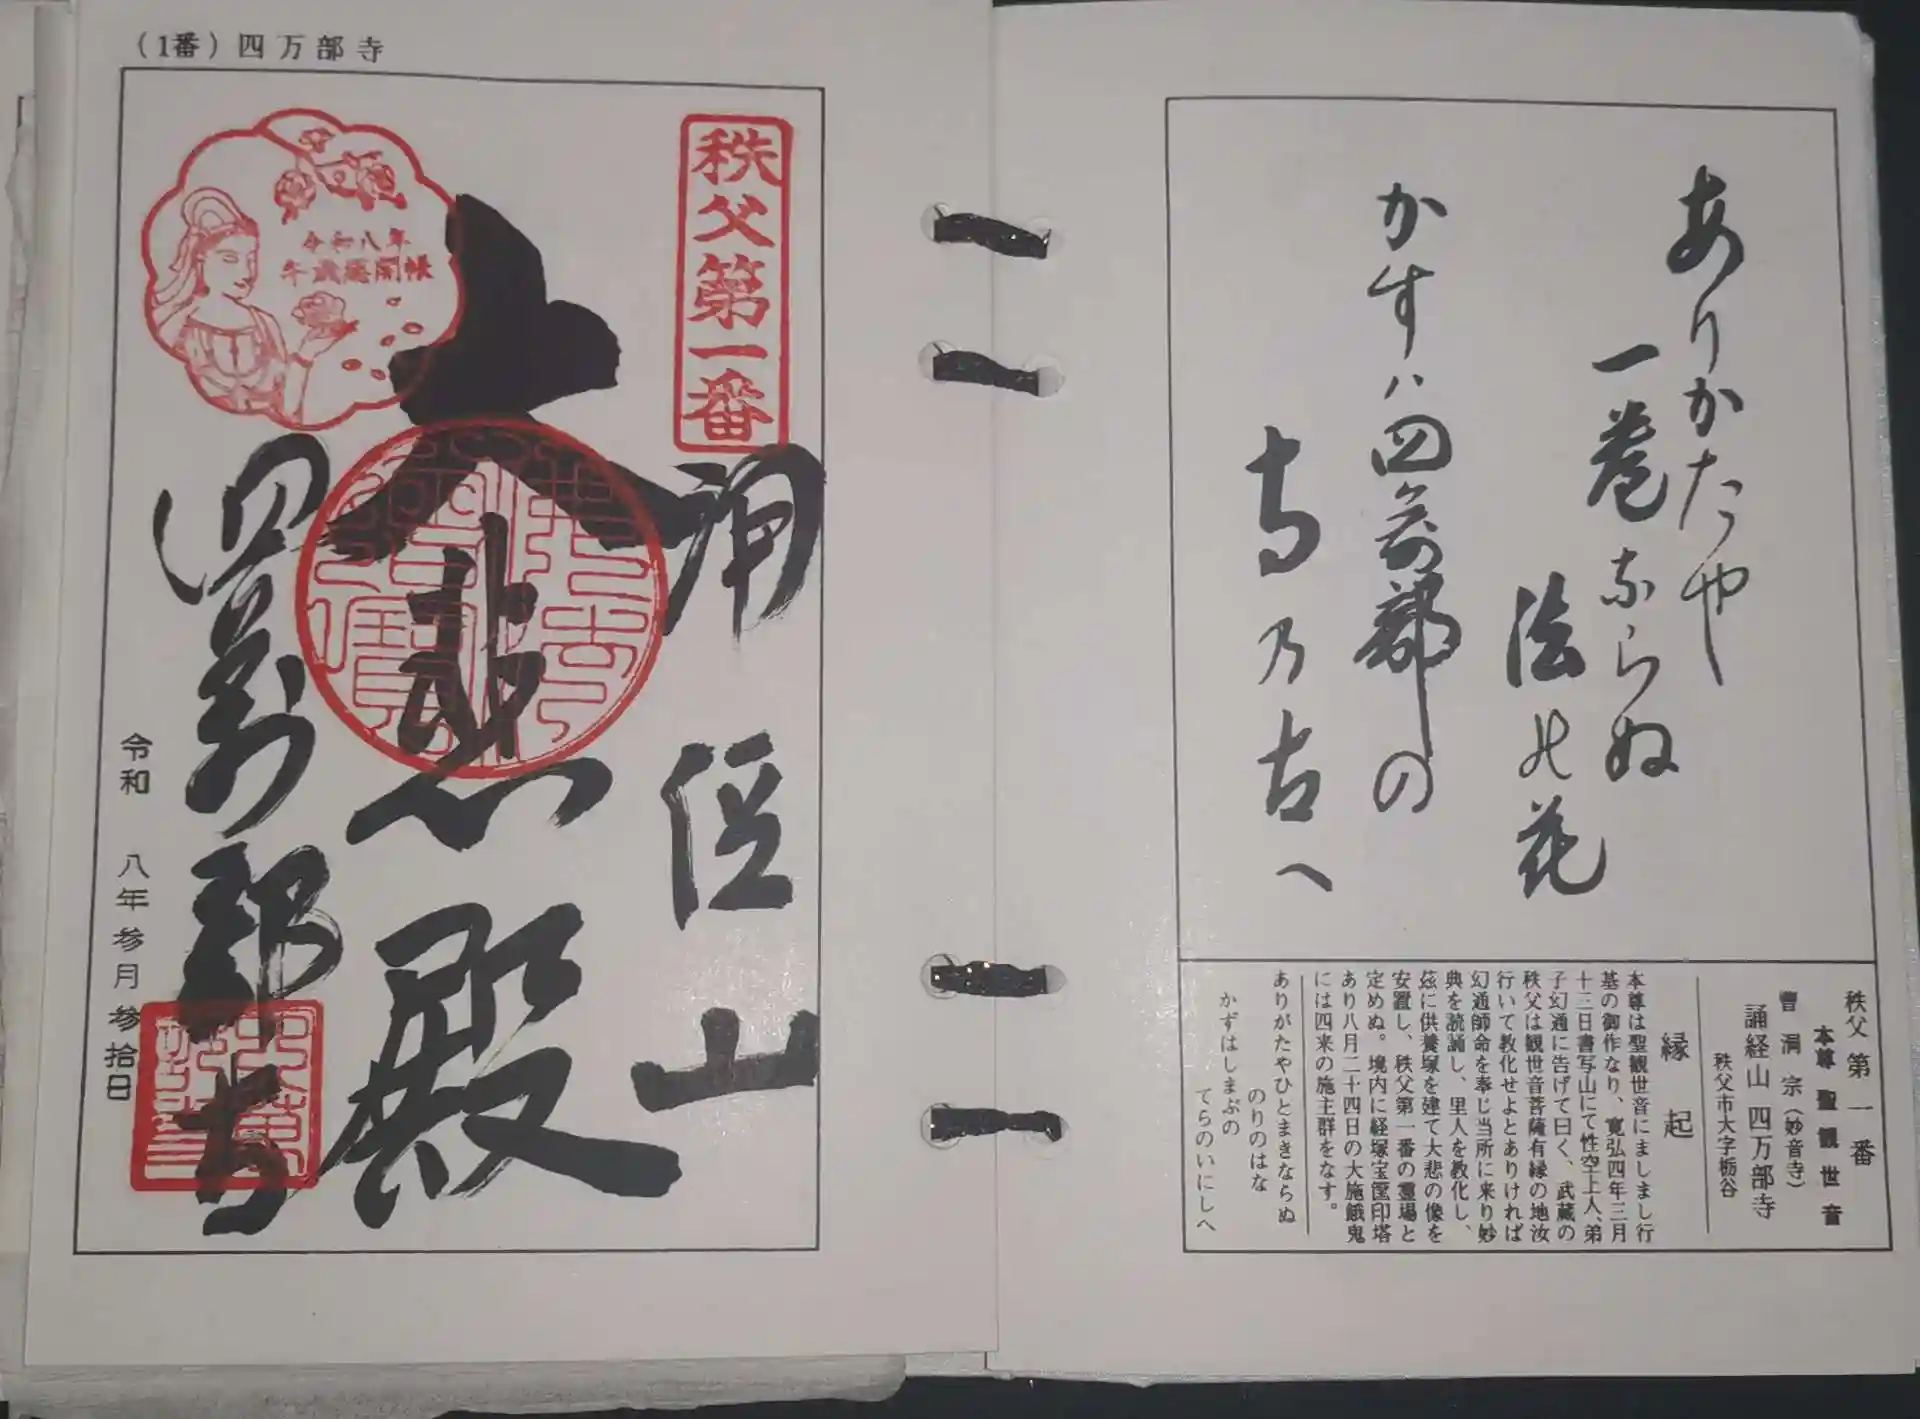 (1番)四万部寺
秩父第一番
誦経山
大悲殿
四萬部寺
令和八年
午歳総開帳
令和 八年参月参拾日
ありかたや
一巻ならぬ
法の花
かすハ四萬部の
寺乃古へ
秩父 第一番
本尊 聖観世音
曹洞宗(妙音寺)
誦経山 四万部寺
秩父市大字栃谷
縁起
本尊は聖観世音にましまし行
基の御作なり、寛弘四年三月
十三日書写山にて性空上人、弟
子幻通に告げて曰く、武蔵の
秩父は観世音菩薩有縁の地汝
行いて教化せよとありければ
幻通師命を奉じ当所に来り妙
典を読誦し、里人を教化し、
茲に供養塚を建て大悲の像を
安置し、秩父第一番の霊場と
定めぬ。境内に経塚宝篋印塔
あり八月二十四日の大施餓鬼
には四来の施主群をなす。
ありがたやひとまきならぬ
のりのはな
かずはしまぶの
てらのいにしへ